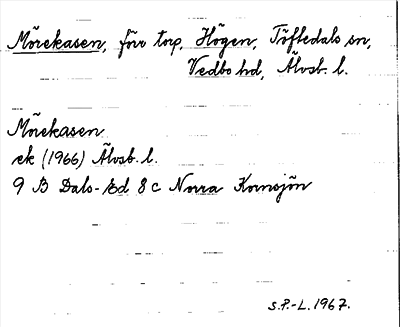 Mörekasen, förr torp, Högen, Töftedals sn,
Vedbo hd, Älvsb. l.
Mörekasen
ek (1966) Älvsb. l.
9 B Dals-Ed 8 c Norra Kornsjön
S.P.-L. 1967.